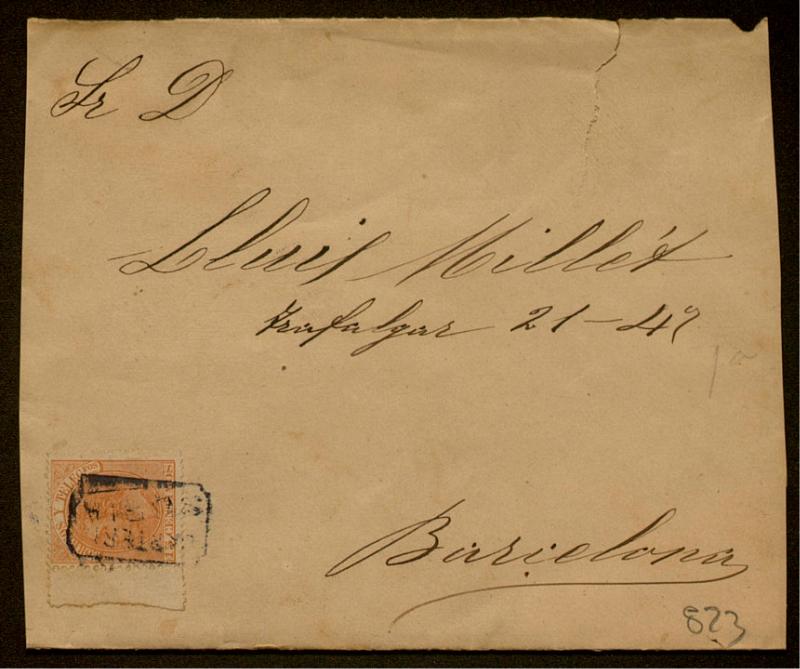 Sr D
Lluis Millét
Trafalgar 21-4º
Barcelona
823